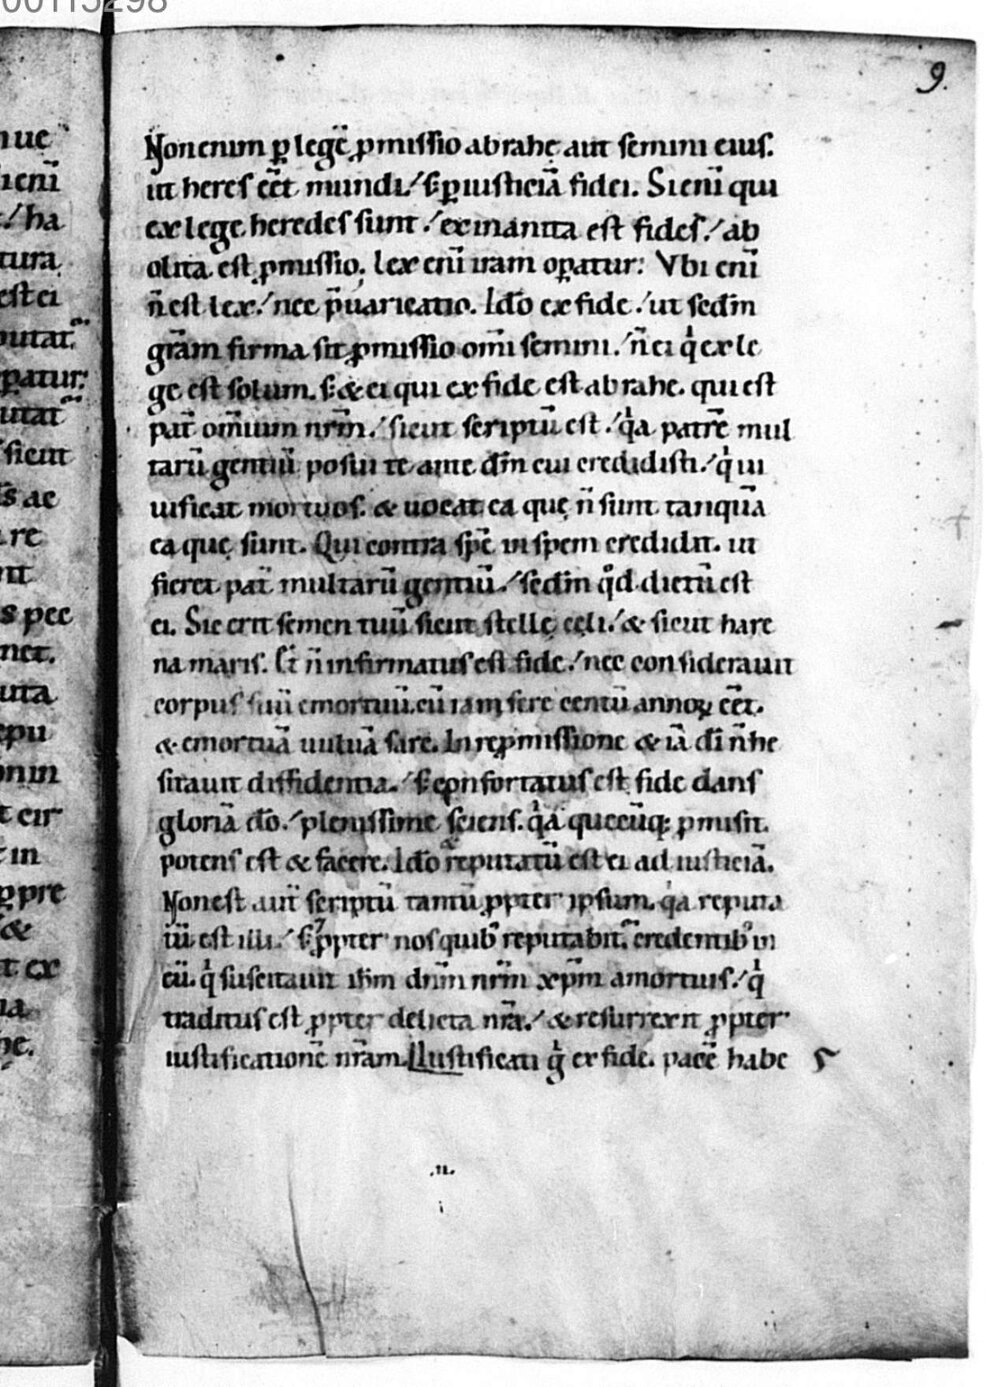 00115298
9.
Non enim ꝑ legē ꝓmissio abrahę aut semini eius.
ut heres eēt mundi/ s; ꝑ iusticiā fidei. Si eni̅ qui
ex lege heredes sunt/ exinanita est fides/ ab
olita est ꝓmissio. lex eni̅ iram oꝑatur: Vbi eni̅
n̅ est lex/ nec p̅uaricatio. Ido̅ ex fide/ ut sedm̅
gra̅m firma sit ꝓmissio om̅i semini/ n̅ ei qͥ ex le
ge est solum. s; & ei qui ex fide est abrahe. qui est
pat̅ om̅ium nr̅m/ sicut scriptū est/ qͥa patre̅ mul
tarū gentiū posui te ante dm̅ cui credidisti/ qͥ ui
uificat mortuos. & uocat ea quę n̅ sunt tanquā
ea quę sunt. Qui contra spē in spem credidit. ut
fieret pat̅ multarū gentiū/ sedm̅ qͦd dictū est
ei. Sic erit semen tuū sicut stellę cęli/ & sicut hare
na maris. Et n̅ infirmatus est fide/ nec considerauit
corpus suū emortuū. cū iam fere centū annoꝝ eēt.
& emortuā uuluā sare. In reꝓmissione & iā di̅ n̅ he
sitauit diffidentia/ s; confortatus est fide dans
gloriā do̅/ plenissime sciens. qͥa quecūq; ꝓmisit.
potens est & facere. Ido̅ & reputatū est ei ad iusticiā.
Non est aut̅ scriptū tantū ꝓpter ipsum. qͥa reputa
tū est illi/ s; & ꝓpter nos quib; reputabit̅ credentib; in
eū. qͥ suscitauit ih̅m dn̅m nr̅m xp̅m a mortuis/ qͥ
traditus est ꝓpter delicta nr̅a/ & resurrexit ꝓpter
iustificationē nr̅am. Iustificati gͦ ex fide. pacē habe
.ii.